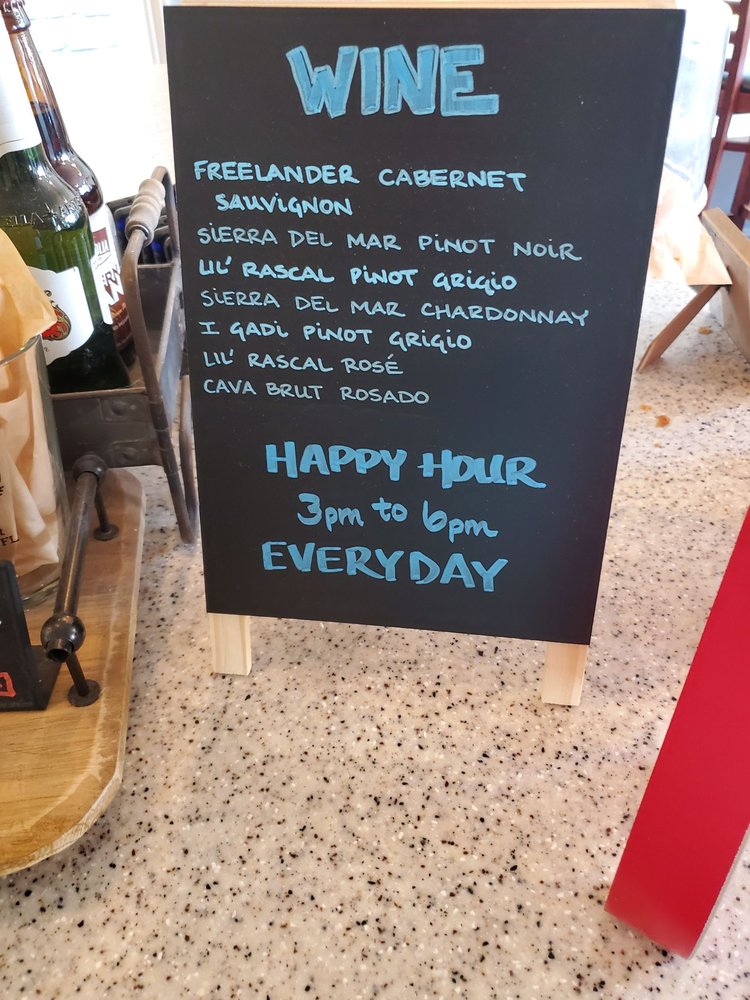 WINE
FREELANDER CABERNET
SAUVIGNON
SIERRA DEL MAR PINOT NOIR
LIL' RASCAL PINOT GRIGIO
SIERRA DEL MAR CHARDONNAY
I GADI PINOT GRIGIO
LIL' RASCAL ROSÉ
CAVA BRUT ROSADO
HAPPY HOUR
3pm to 6pm
EVERYDAY